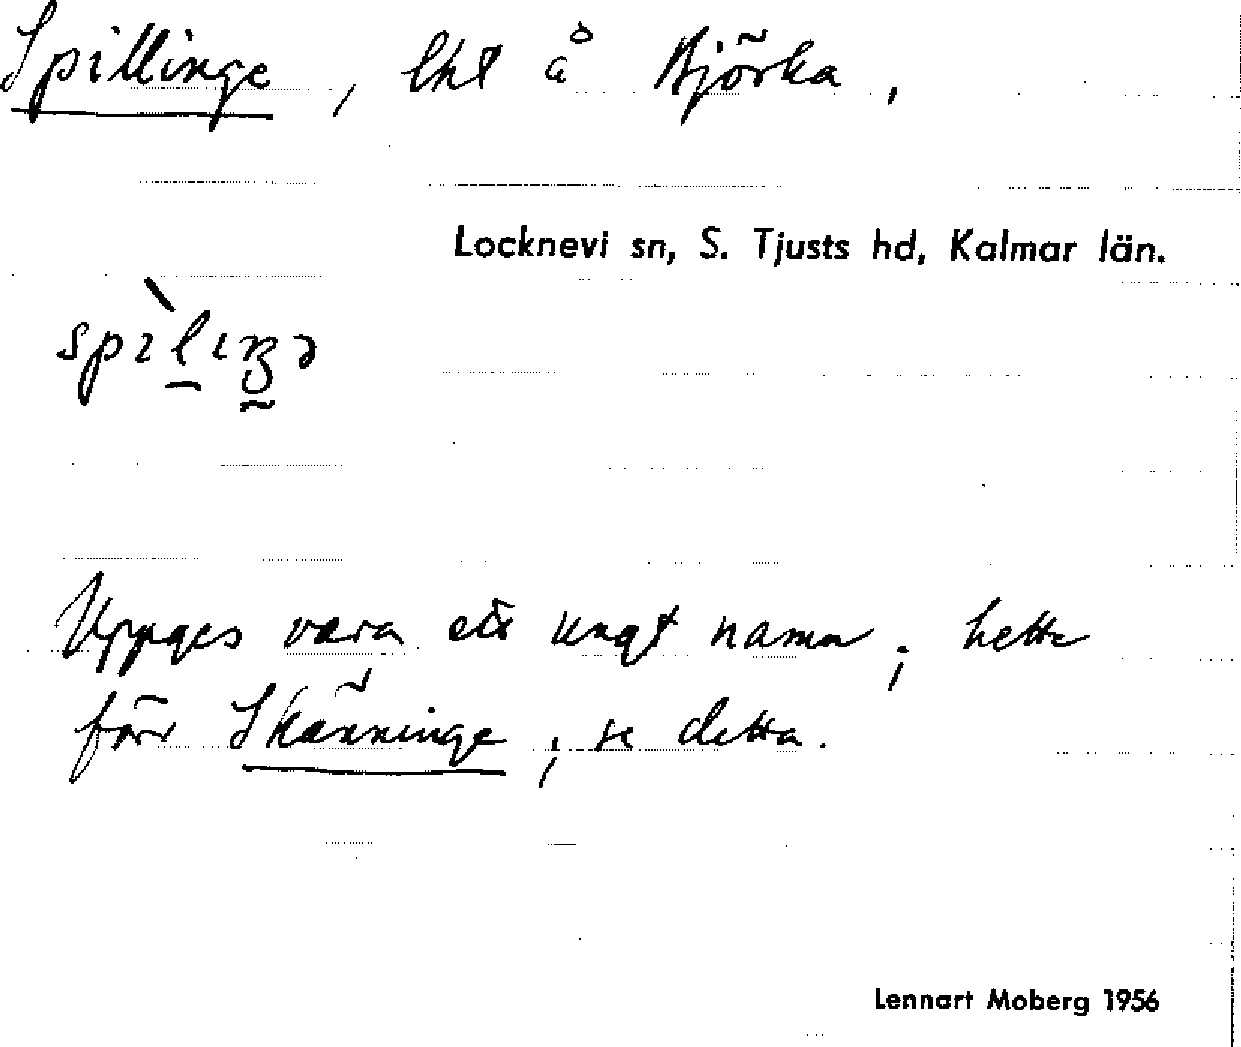 Spillinge, lht å Björka,
Locknevi sn, S. Tjusts hd, Kalmar län.
Uppges vara ett ungt namn; hette
förr Skänninge; se detta.
Lennart Moberg 1956